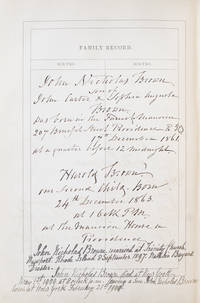 FAMILY RECORD.
BIRTHS. BIRTHS.
John Nicholas Brown
son of
John Carter & Sophia Augusta
Brown
was born in the Family Mansion
Street Providence R.I.
17th December 1861
at a quarter before 12 Midnight.
Harold Brown
our Second Child. Born
24th December 1863
at 1
at the Mansion House in
Providence
John Nicholas Brown married at Trinity Church,
Newport, Rhode Island 8 September 1897 Natalie Bayard
Dresser.
John Nicholas Brown died at New York
May 1st 1900 at o'clock leaving a son John Nicholas Brown
born at New York February 21st 1900.